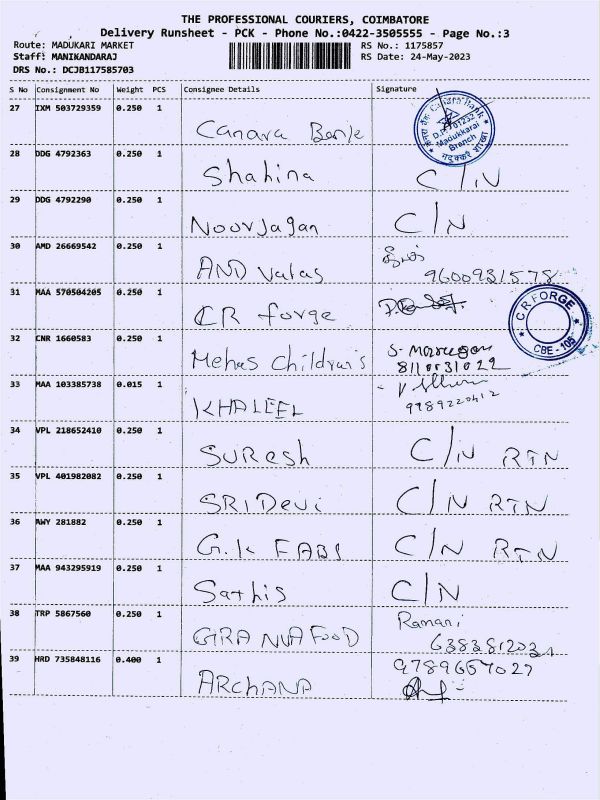 THE PROFESSIONAL COURIERS, COIMBATORE
Delivery Runsheet - PCK - Phone No.:0422-3505555 - Page No.:3
Route: MADUKARI MARKET RS No.: 1175857
Staff: MANIKANDARAJ RS Date: 24-May-2023
DRS No.: DCJB117585703
S No Consignment No Weight PCS Consignee Details Signature
27 IXM 503729359 0.250 1 Canara Bank Canara Bank Madukkarai Branch
28 DDG 4792363 0.250 1 Shahina C/N
29 DDG 4792290 0.250 1 Noorjagan C/N
30 AMD 26669542 0.250 1 AND Valas 9600931578
31 MAA 570504205 0.250 1 CR forge C R FORGE CBE - 105
32 CNR 1660583 0.250 1 Mehas Childrai's S- Marugan
33 MAA 103385738 0.015 1 KHALEEL 9789220412
34 VPL 218652410 0.250 1 SURESh C/N RTN
35 VPL 401982082 0.250 1 SRI Devi C/N RTN
36 AWY 281882 0.250 1 G.K FABS C/N RTN
37 MAA 943295919 0.250 1 Sathis C/N
38 TRP 5867560 0.250 1 Ramani
39 HRD 735848116 0.400 1 ARChANA 9789657027